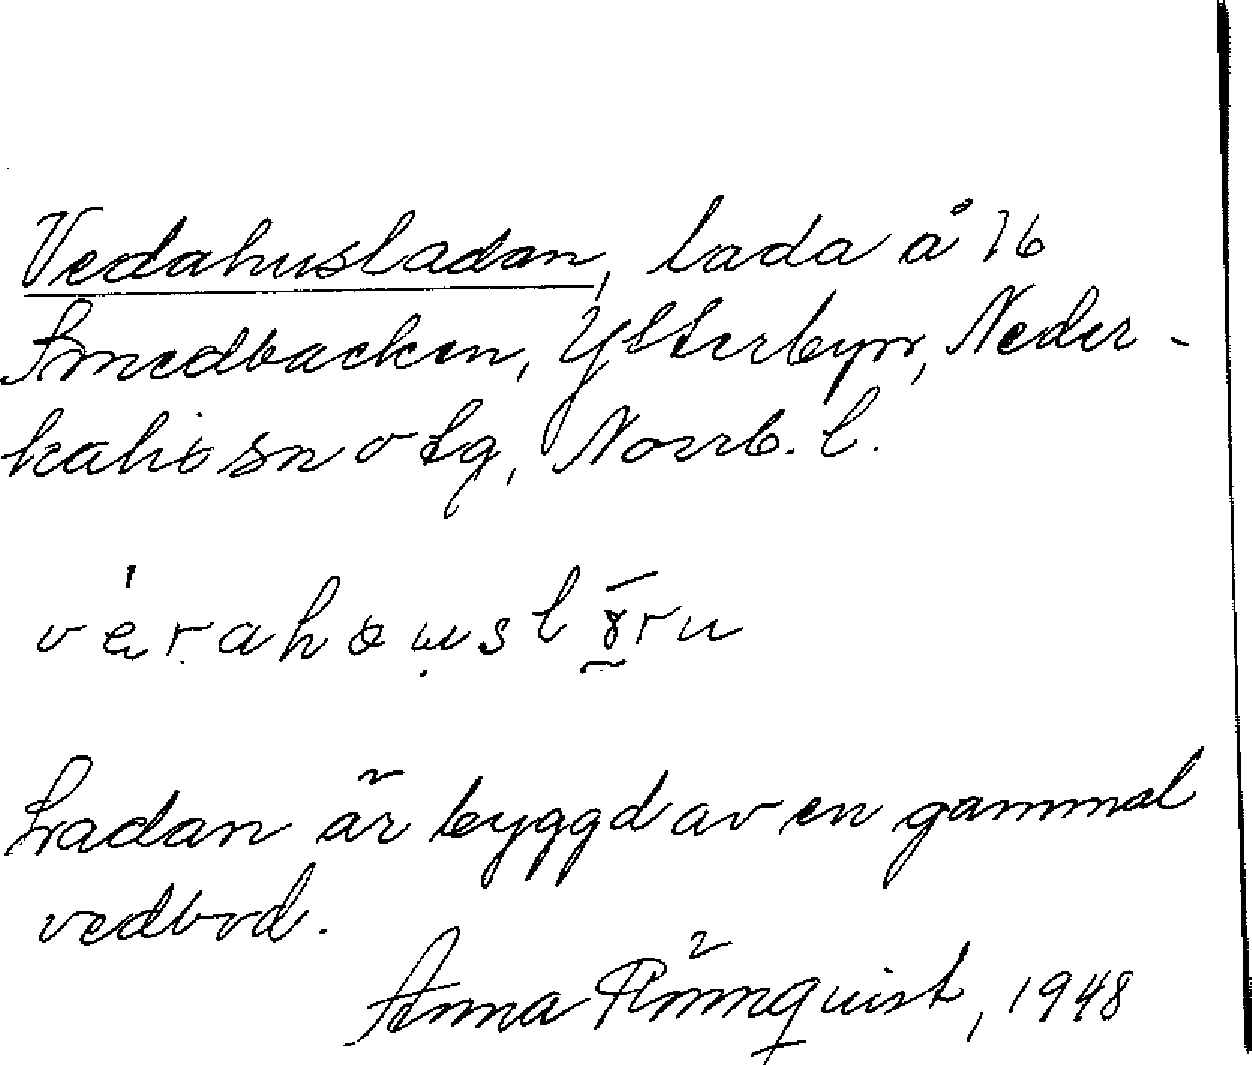 Vedahusladan, lada å 16
Smedbacken, Ytterbyn, Neder-
kalix sn o tg, Norrb. l.
Ladan är byggd av en gammal
vedbod.
Anna Rönnquist, 1948